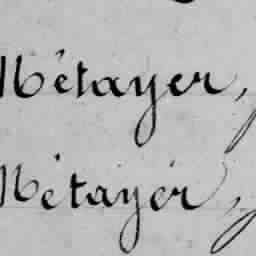 Métayer,
Métayer,